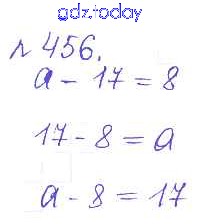 gdz.today
№ 456.
a - 17 = 8
17 - 8 = a
a - 8 = 17